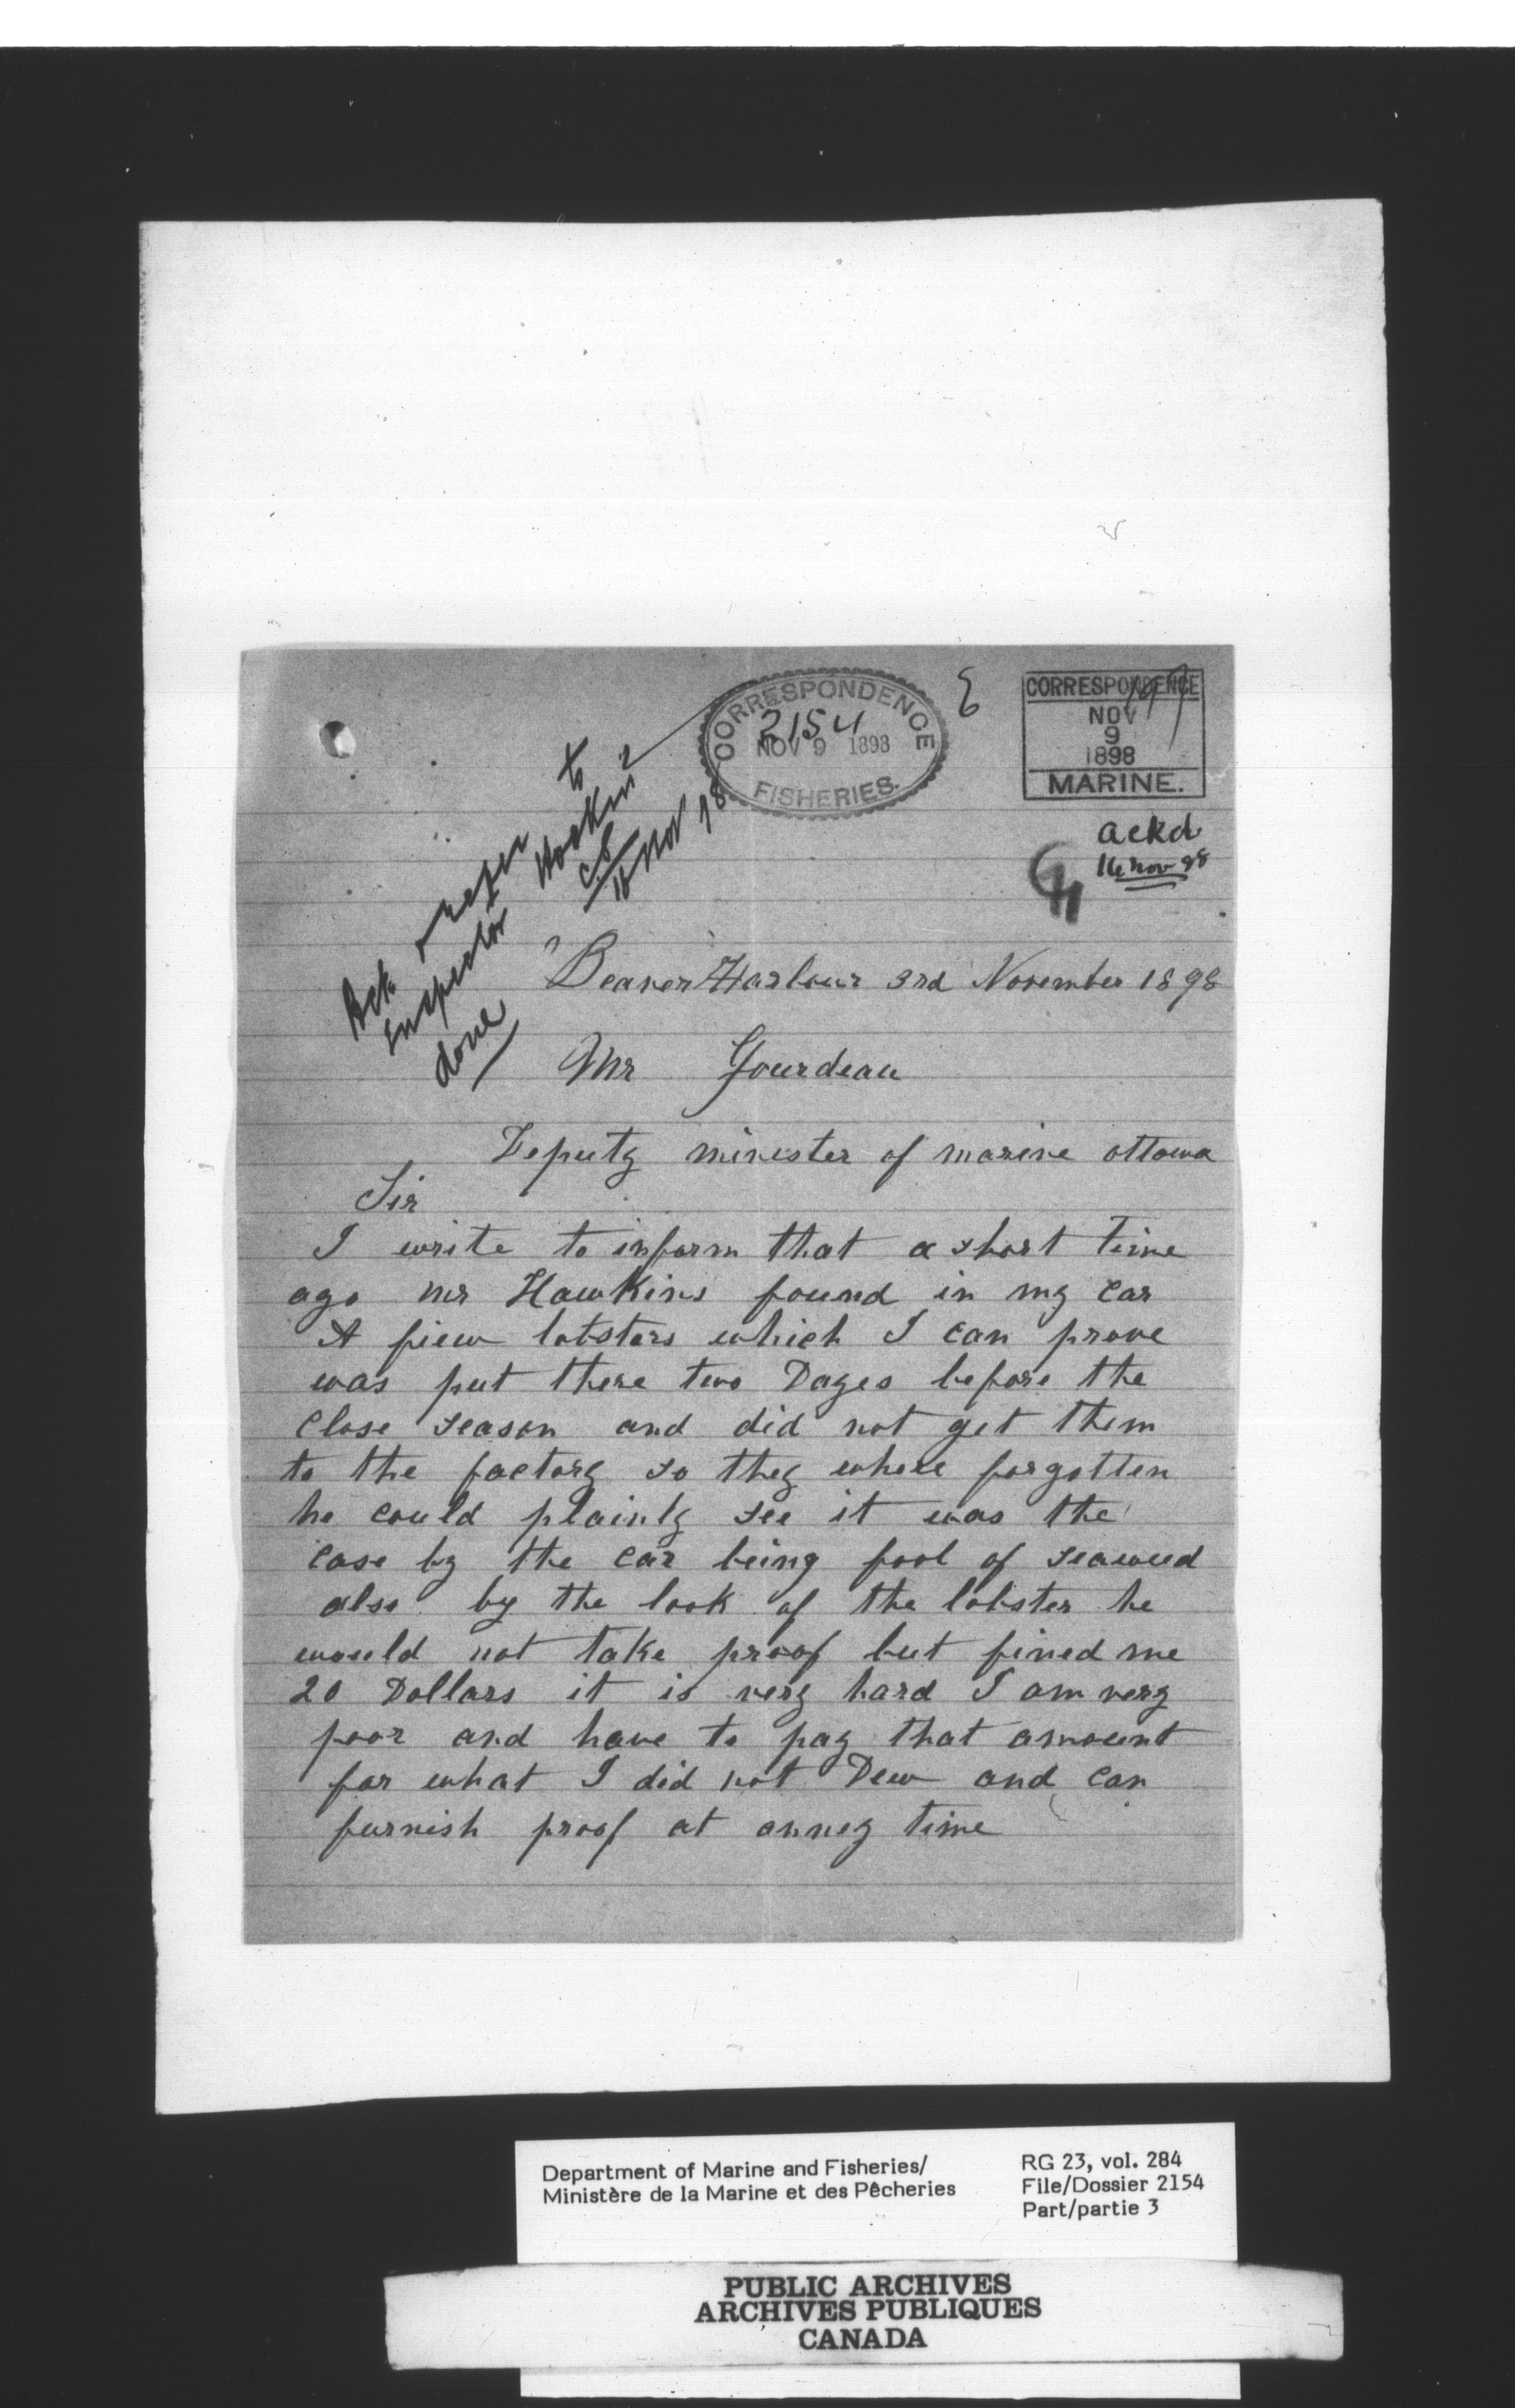 CORRESPONDENCE
2154
NOV 9 1898
FISHERIES.
CORRESPONDENCE
NOV
9
1898
MARINE.
ackd
16 Nov 98
Ack & refer to
Inspector
done
Beaver Harbour 3rd November 1898
Mr Gourdeau
Deputy minister of marine ottawa
Sir
I write to inform that a short Time
ago mr Hawkins found in my car
A fiew lobsters which I can prove
was put there two Dayes before the
Close season and did not get them
to the factory so they where forgotten
he could plainly see it was the
case by the car being fool of seaweed
also by the look of the lobster he
would not take proof but fined me
20 Dollars it is very hard I am very
poor and have to pay that amount
for what I did not Dew and can
furnish proof at anney time
Department of Marine and Fisheries/
Ministère de la Marine et des Pêcheries
RG 23, vol. 284
File/Dossier 2154
Part/partie 3
PUBLIC ARCHIVES
ARCHIVES PUBLIQUES
CANADA